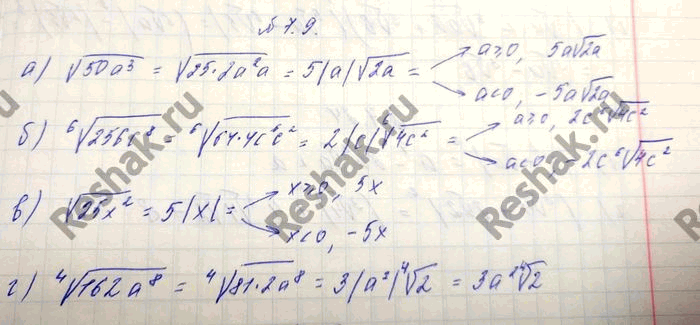 № 7.9.
а) √50a³ = √25·2a²a = 5|a|√2a = a≥0, 5a√2a
a<0, -5a√2a
б) ⁶√256c⁸ = ⁶√64·4c⁶c² = 2|c|⁶√4c² = a≥0, 2c⁶√4c²
a<0, -2c⁶√4c²
в) √25x² = 5|x| = x≥0, 5x
x<0, -5x
г) ⁴√162a⁸ = ⁴√81·2a⁸ = 3|a²|⁴√2 = 3a²⁴√2
Reshak.ru
Reshak.ru
Reshak.ru